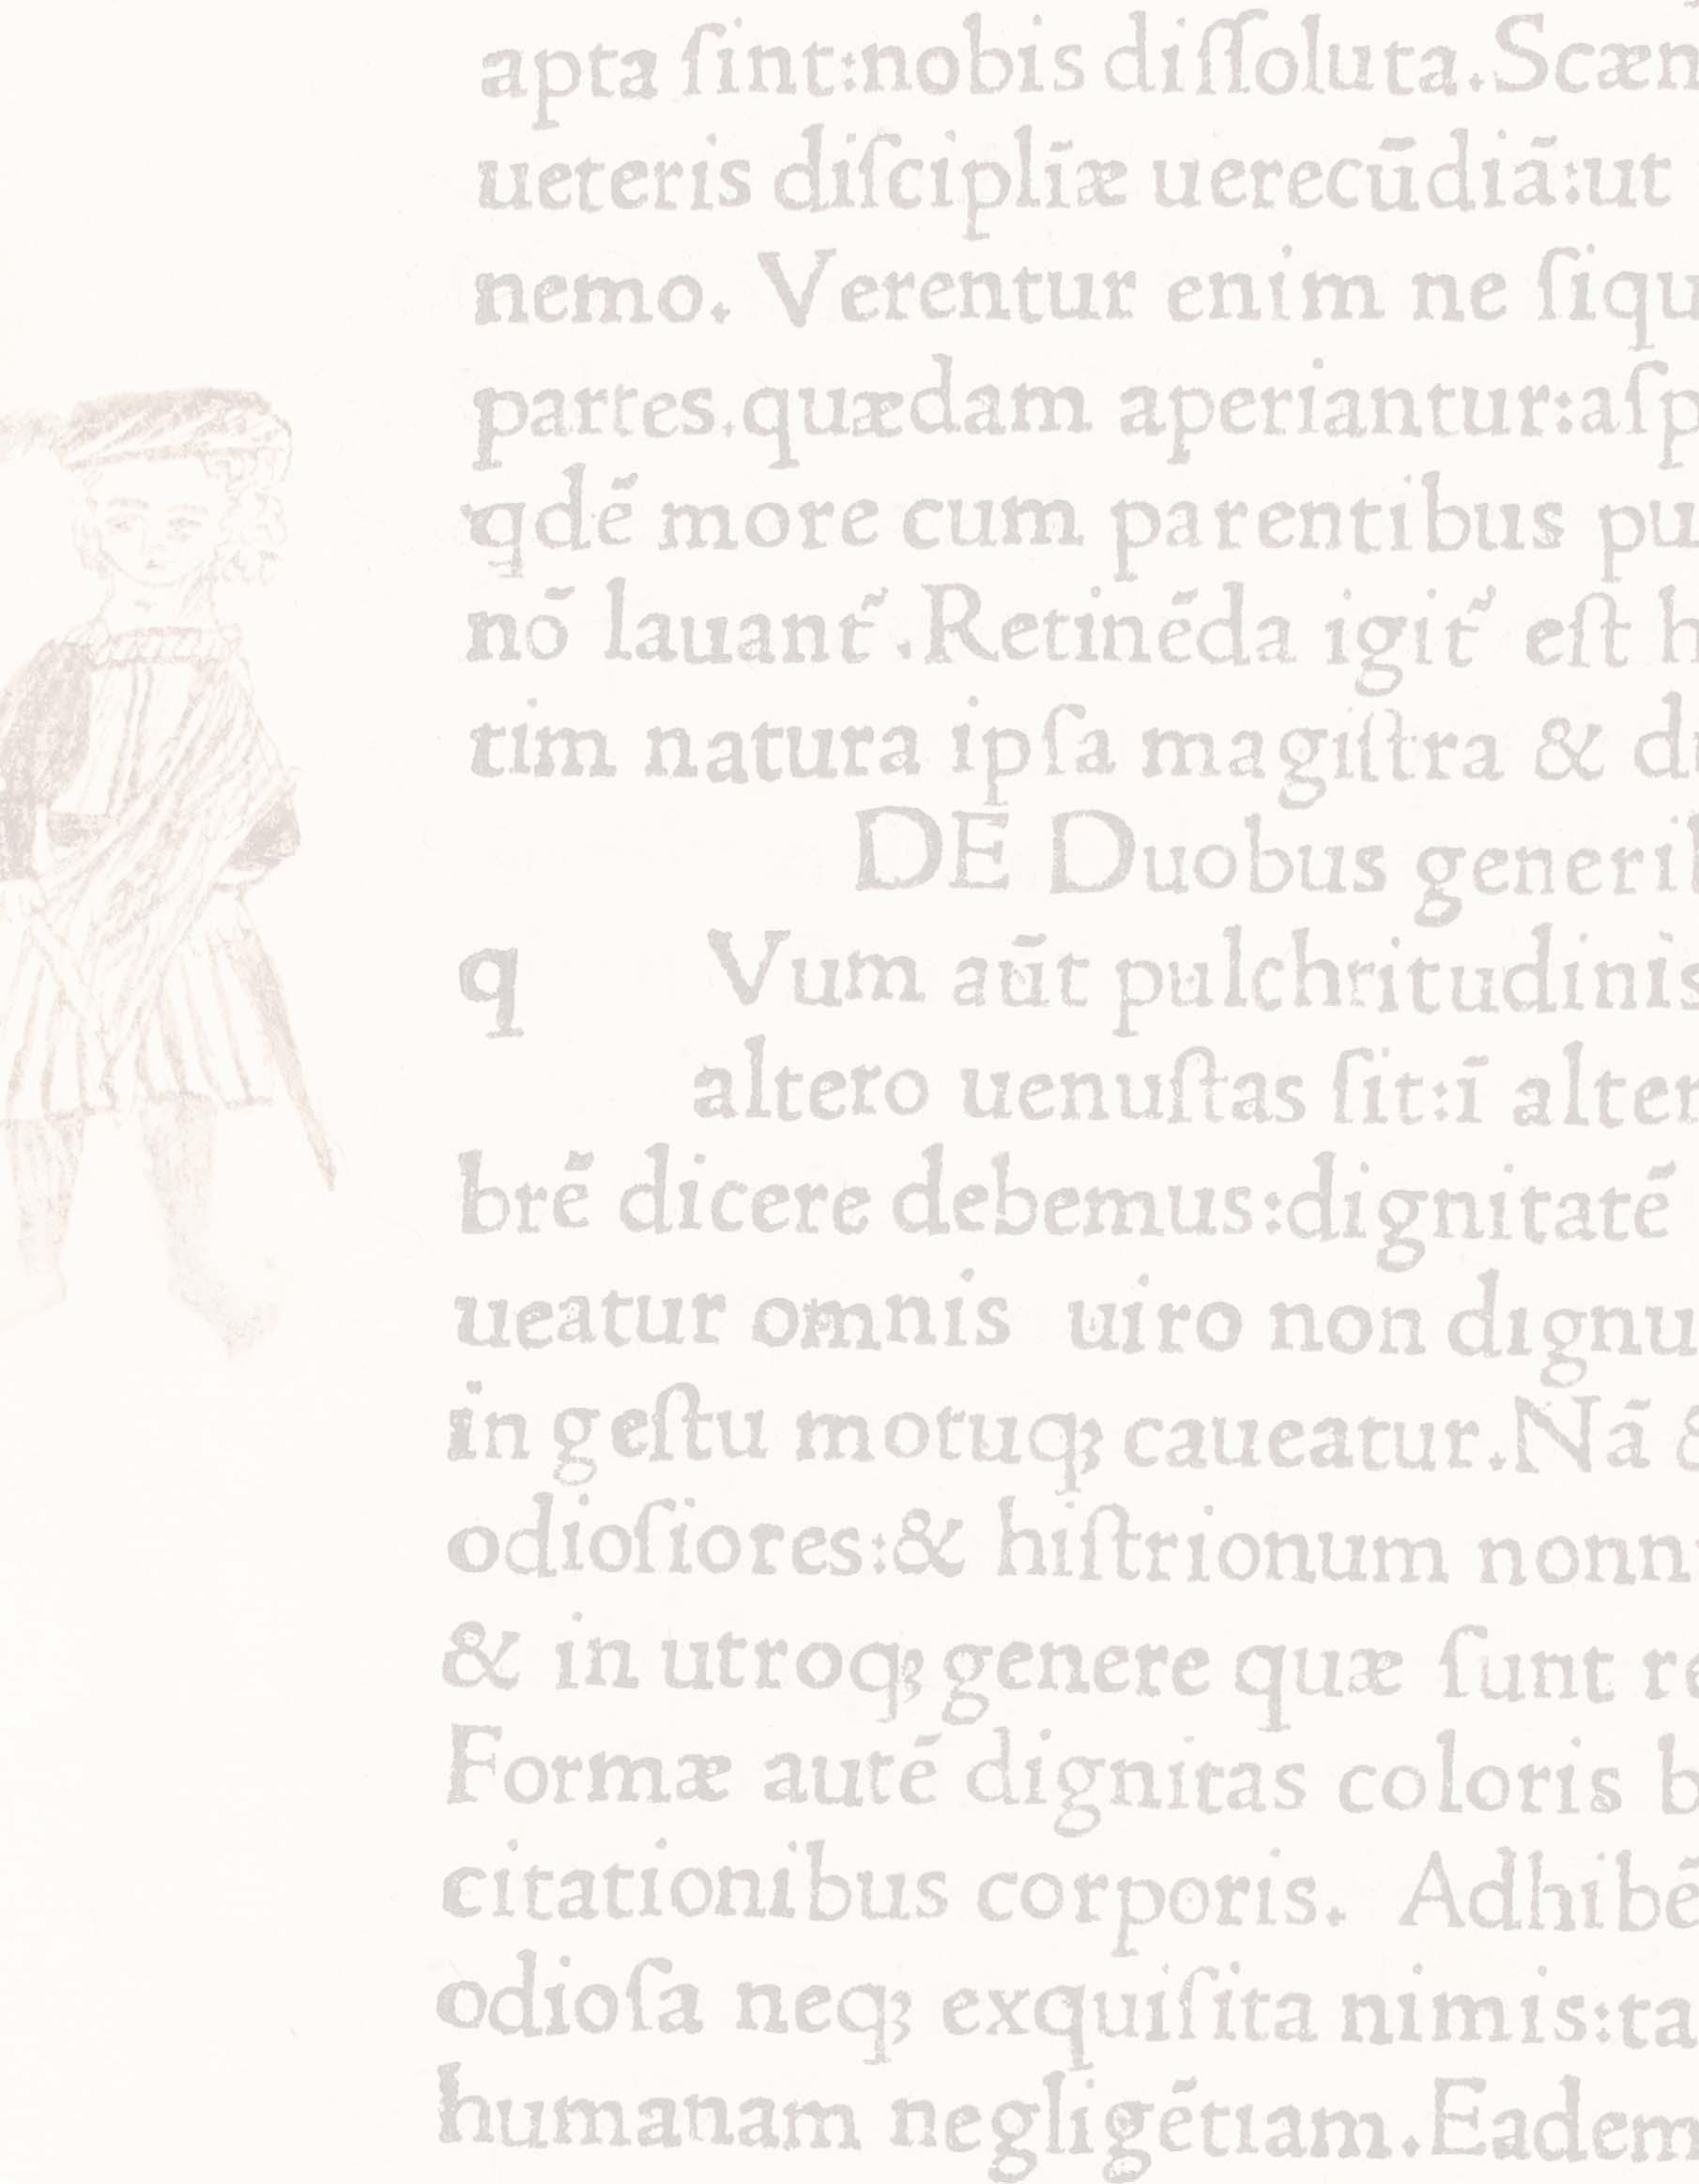 apta ſint:nobis diſſoluta.Scæn
ueteris diſcipliīæ uerecūdiā:ut
nemo. Verentur enim ne ſiqu
partes.quædam aperiantur:aſp
qdē more cum parentibus pu
nō lauant᷑.Retinēda igit᷑ eſt h
tim natura ipſa magiſtra & du
DE Duobus generib
q Vum aūt pulchritudinis
altero uenuſtas ſit:ī alter
brē dicere debemus:dignitatē
ueatur omnis uiro non dignu
in geſtu motuqꝫ caueatur.Nā &
odioſiores:& hiſtrionum nonn
& in utroqꝫ genere quæ ſunt re
Formæ autē dignitas coloris b
citationibus corporis. Adhibē
odioſa neqꝫ exquiſita nimis:ta
humanam negligētiam.Eadem